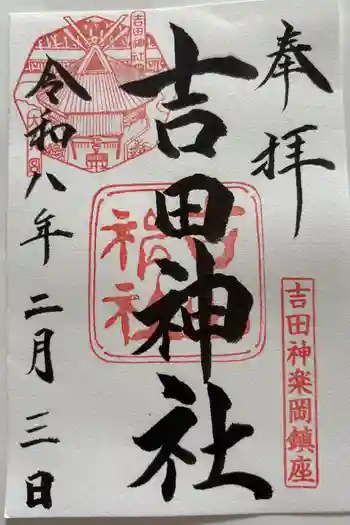 奉拝
吉田神楽岡鎮座
吉田神社
吉田神社
令和八年二月三日